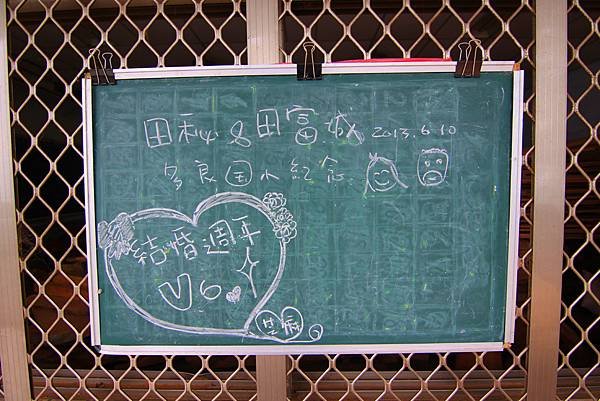 田秘&田富城 2013.6.10
多良国小紀念
結婚週年
V6
芝麻G